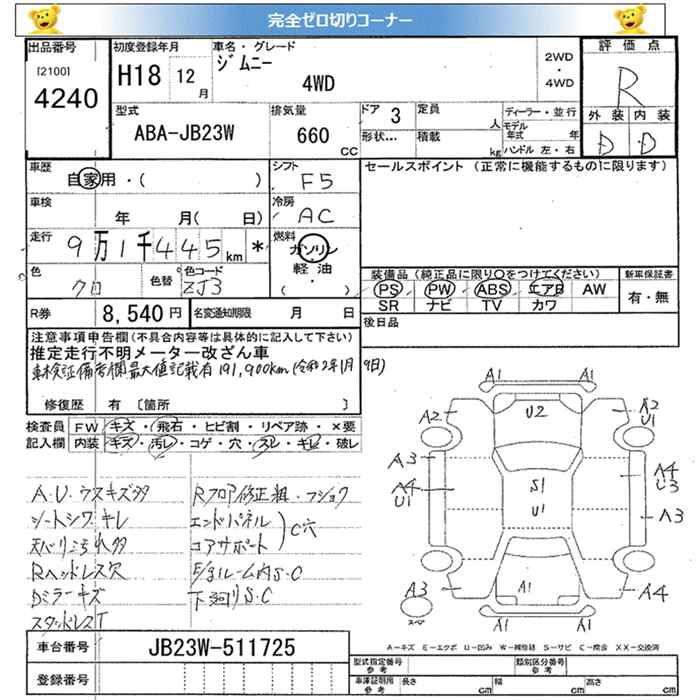 完全ゼロ切りコーナー
出品番号
[2100]
4240
初度登録年月
H18 12 月
車名・グレード
ジムニー
4WD
2WD
・
4WD
評価点
R
外装 内装
D D
型式
ABA-JB23W
排気量
660 CC
ドア 3
形状...
定員 人
積載 kg
ディーラー・並行
モデル年式 年
ハンドル 左・右
車歴
自家用・( )
シフト
F5
セールスポイント (正常に機能するものに限ります)
車検
年 月( 日)
冷房
AC
走行
9万1千445km *
燃料
ガソリン
軽油
( )
色
クロ
色替
色コード
ZJ3
装備品(純正品に限り○をつけてください)
PS PW ABS エアB AW
SR ナビ TV カワ
新車保証書
有・無
R券 8,540 円
名変通知期限 月 日
後日品
注意事項申告欄(不具合内容等は具体的に記入して下さい)
推定走行不明メーター改ざん車
車検証備考欄最大値記載有 191,900km (令和2年1月9日)
修復歴 有 〔箇所 〕
検査員記入欄
FW キズ・飛石・ヒビ割・リペア跡・×要
内装 キズ・汚レ・コゲ・穴・スレ・キレ・破レ
A.U.ウスキズ多
シートシワキレ
天バリ汚れ多
Rヘッドレス欠
Dミラーキズ
スタッドレスT
Rフロア修正粗・フショク
エンドパネル
コアサポート
C穴
E/gルーム内S.C
下廻りS.C
A1 A1
A2 U2 A2
U1
A3 A4
U1
S1
U1
A4
U3
A3
A3 A1 A4
スペア
A1 A1
A-キズ E-エクボ U-凹み W-補修跡 S-サビ C-腐食 XX-交換済
車台番号 JB23W-511725
登録番号
型式指定番号
参考
類別区分番号
参考
車庫証明用
参考
長さ cm 幅 cm 高さ cm